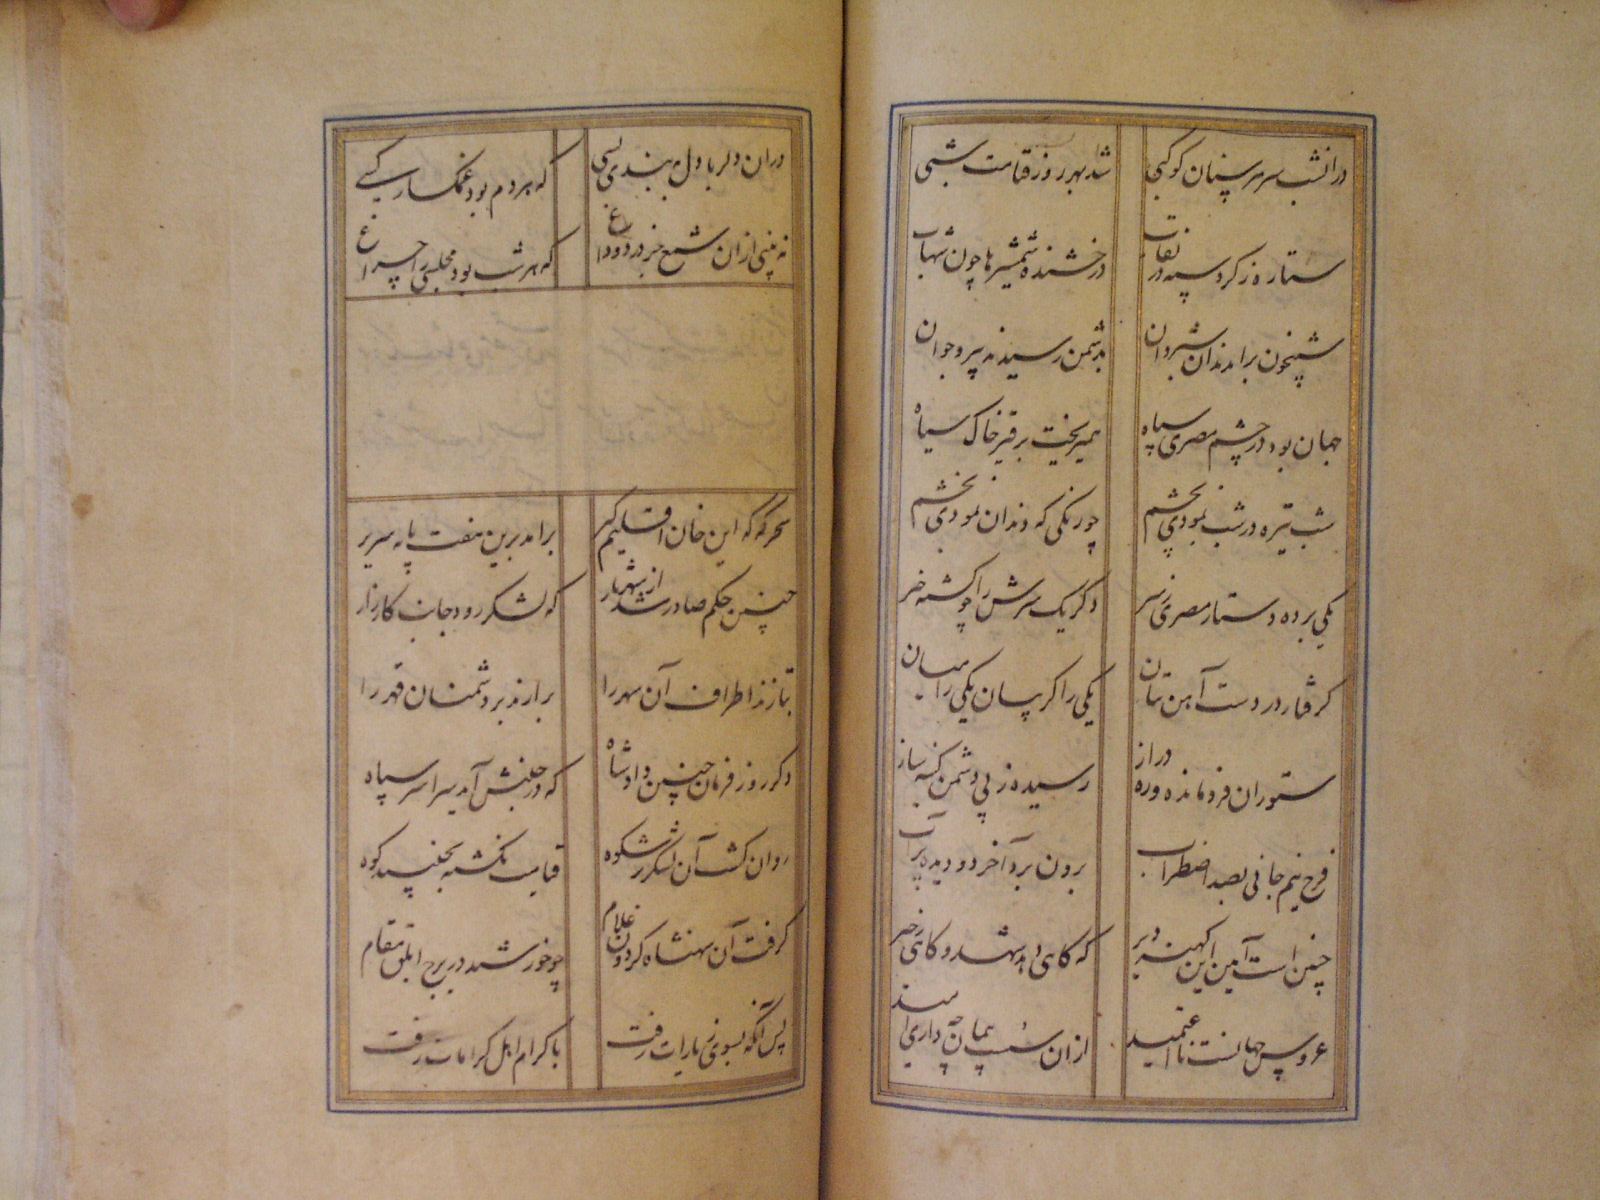 درانشب سر هر سنان کوکبی شد بهر روز قیامت شبی
ستاره ز کرد سپه در نقاب درخشنده شمشیرها چون شهاب
شبیخون برامدند ان شبروان بدشمن رسیدند پیر و جوان
جهان بود در چشم مصری سپاه همیریخت برقیر خاک سیاه
شب تیره در شب نمودی بچشم چو زنکی که دندان نمودی بخشم
یکی برده دستار مصری ز سر دکر یک سرش را چو کشته خبر
کرفتار در دست آهن تنان یکی را کریبان یکی را میان
ستوران فرومانده و ره دراز رسیده ز پی دشمن کینه ساز
فرج نیم جانی بصد اضطراب برون برد آخر دو دیده پرآب
چنین است آیین این کهنه دیر که کاهی دهد شهد و کاهی
عروس جهانست نااعتمید ازان سست پیمان چه داری امید
دران دلربا دل نبندی بسی که هر دم بود غمکسار کسی
نه بینی ازان شمع جز درد و داغ که هر شب بود مجلسی را چراغ
سحرکه که این خان اقلیم کیر برامد برین هفت پایه سریر
چنین حکم صادر شد از شهریار که لشکر رود جانب کارزار
بتازند اطراف آن شهر را برارند بر دشمنان قهر را
دکر روز فرمان چنین داد شاه که در جنبش آمد سراسر سپاه
روان کشت آن لشکر پرشکوه قیامت نکشته بجنبید کوه
کرفت آن شهنشاه کردون غلام چو خورشید در برج ابلق مقام
پس آنکه بسوی زیارات رفت باکرام اهل کرامات رفت